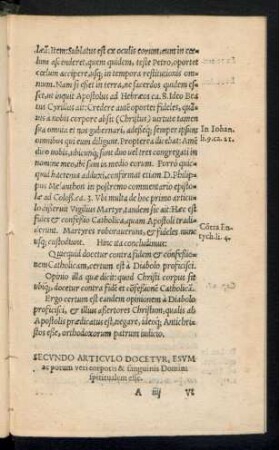 Leū. Item: Sublatus est ex oculis eorum, eunt in cœ-
lum ascenderet, quem quidem, teste Petro, oportet
cœlum accipere, usq; in tempora restitutionis om-
nium. Nam si esset in terra, ne sacerdos quidem es-
set, ut inquit Apostolus ad Hebræos ca. 8. Ideo Bea
tus Cyrillus ait: Credere aūt oportet fideles, quāuis
a nobis corpore absit (Christus) virtute tamen
sua omnia et nos gubernari, adesseq; semper ipsum
omnibus qui eum diligunt. Propterea dicebat: Amen
dico vobis, ubicunq; duo vel tres congregati in
nomine meo, ibi sum in medio eorum. Porro quic-
quid hactenus adduxi, confirmat etiam D. Philip-
pus Melanthon in postremo commentario episto-
læ ad Coloss. ca. 3. Vbi multa de hoc primo articu-
lo disserit Vigilius Martyr, tandem sic ait: Hæc est
fides et confessio Catholica, quam Apostoli tradi-
derunt. Martyres roborauerunt, et fideles nunc
usq; custodiunt. Hinc ita concludimus:
Quicquid docetur contra fidem et confessio-
nem Catholicam, certum est à Diabolo proficisci.
Opinio illa quæ dicit: quod Christi corpus sit
ubiq;, docetur contra fidē et cōfessionē Catholicā.
Ergo certum est eandem opinionem à Diabolo
proficisci, et illius assertores Christum, qualis ab
Apostolis prædicatus est, negare, ideoq; Antichri-
stos esse, orthodoxorum patrum iudicio.
In Iohan.
li. 9. ca. 21.
Cōtra Eu-
tych. li. 4.
SECVNDO ARTICVLO DOCETVR, ESVM
ac potum veri corporis & sanguinis Domini
spiritualem esse.
A iiij
VI